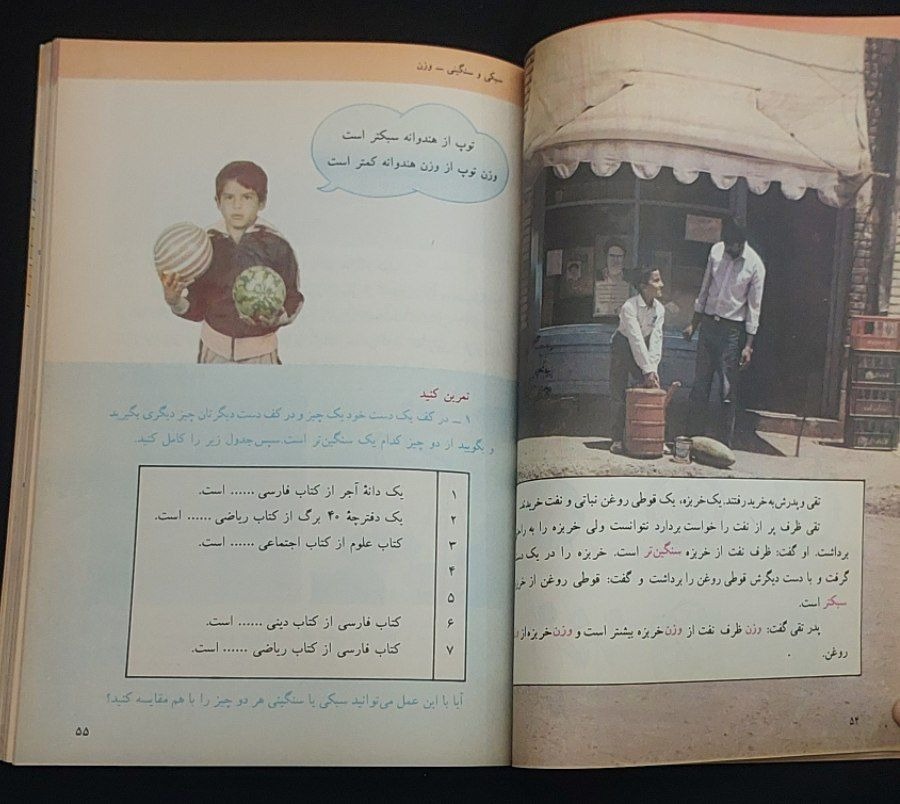 تقی و پدرش به خرید رفتند. یک خربزه، یک قوطی روغن نباتی و نفت خریدند
تقی ظرف پر از نفت را خواست بردارد نتوانست ولی خربزه را به
برداشت. او گفت: ظرف نفت از خربزه سنگین‌تر است. خربزه را در یک
گرفت و با دست دیگرش قوطی روغن را برداشت و گفت: قوطی روغن از
سبکتر است.
پدر تقی گفت: وزن ظرف نفت از وزن خربزه بیشتر است و وزن خربزه از
روغن.
۵۴
سبکی و سنگینی ــ وزن
توپ از هندوانه سبکتر است
وزن توپ از وزن هندوانه کمتر است
تمرین کنید
۱ ــ در کف یک دست خود یک چیز و در کف دست دیگرتان چیز دیگری بگیرید
و بگویید از دو چیز کدام یک سنگین‌تر است. سپس جدول زیر را کامل کنید.
۱ یک دانهٔ آجر از کتاب فارسی ...... است.
۲ یک دفترچهٔ ۴۰ برگ از کتاب ریاضی ...... است.
۳ کتاب علوم از کتاب اجتماعی ...... است.
۴
۵
۶ کتاب فارسی از کتاب دینی ...... است.
۷ کتاب فارسی از کتاب ریاضی ...... است.
آیا با این عمل می‌توانید سبکی یا سنگینی هر دو چیز را با هم مقایسه کنید؟
۵۵